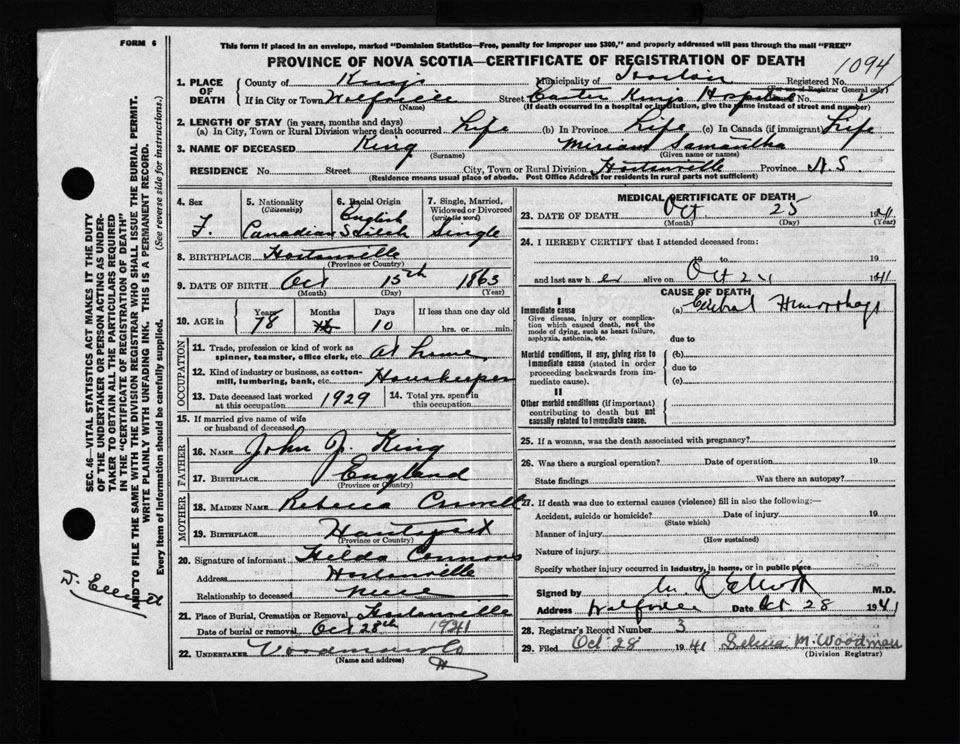 FORM 6
This form if placed in an envelope, marked "Dominion Statistics—Free, penalty for improper use $300," and properly addressed will pass through the mail "FREE"
PROVINCE OF NOVA SCOTIA—CERTIFICATE OF REGISTRATION OF DEATH
1094
1. PLACE OF DEATH
County of Kings Municipality of Horton Registered No.
(For use of Registrar General only)
If in City or Town Wolfville Street Easter Kings Hospital No.
(Name) (If death occurred in a hospital or institution, give the name instead of street and number)
2. LENGTH OF STAY (in years, months and days)
(a) In City, Town or Rural Division where death occurred Life (b) In Province Life (c) In Canada (if immigrant) Life
3. NAME OF DECEASED King Miriam Samantha
(Surname) (Given name or names)
RESIDENCE No. Street City, Town or Rural Division Hortonville Province N.S.
(Residence means usual place of abode. Post Office Address for residents in rural parts not sufficient)
4. Sex
F.
5. Nationality
(Citizenship)
Canadian
6. Racial Origin
English
Scotch
7. Single, Married, Widowed or Divorced
(write the word)
Single
8. BIRTHPLACE Hortonville
(Province or Country)
9. DATE OF BIRTH Oct 15th 1863
(Month) (Day) (Year)
10. AGE in
Years Months Days If less than one day old
78 10 hrs. or min.
OCCUPATION
11. Trade, profession or kind of work as spinner, teamster, office clerk, etc. at home
12. Kind of industry or business, as cotton-mill, lumbering, bank, etc. Housekeeper
13. Date deceased last worked at this occupation 1929
14. Total yrs. spent in this occupation
15. If married give name of wife or husband of deceased
FATHER
16. NAME John J. King
17. BIRTHPLACE England
(Province or Country)
MOTHER
18. MAIDEN NAME Rebecca
19. BIRTHPLACE Hantsport
(Province or Country)
20. Signature of informant Helda Connors
Address Hortonville
Relationship to deceased niece
21. Place of Burial, Cremation or Removal Hortonville
Date of burial or removal Oct 28th 1941
22. UNDERTAKER Woodman Co
(Name and address)
MEDICAL CERTIFICATE OF DEATH
23. DATE OF DEATH Oct 25 1941
(Month) (Day) (Year)
24. I HEREBY CERTIFY that I attended deceased from:
19 to 19
and last saw her alive on Oct 1941
CAUSE OF DEATH
I
Immediate cause
Give disease, injury or complication which caused death, not the mode of dying, such as heart failure, asphyxia, asthenia, etc.
(a) Cerebral Hemorrhage
due to
Morbid conditions, if any, giving rise to immediate cause (stated in order proceeding backwards from immediate cause).
(b)
due to
(c)
II
Other morbid conditions (if important) contributing to death but not causally related to immediate cause.
25. If a woman, was the death associated with pregnancy?
26. Was there a surgical operation? Date of operation 19
State findings Was there an autopsy?
27. If death was due to external causes (violence) fill in also the following:—
Accident, suicide or homicide? Date of injury 19
(State which)
Manner of injury
(How sustained)
Nature of injury
Specify whether injury occurred in industry, in home, or in public place
Signed by Elliott M.D.
Address Wolfville Date Oct 28 1941
28. Registrar's Record Number 3
29. Filed Oct 28 1941 Selina M. Woodman
(Division Registrar)
SEC. 46—VITAL STATISTICS ACT MAKES IT THE DUTY
OF THE UNDERTAKER OR PERSON ACTING AS UNDER-
TAKER TO OBTAIN ALL THE PARTICULARS REQUIRED
IN THE "CERTIFICATE OF REGISTRATION OF DEATH"
AND TO FILE THE SAME WITH THE DIVISION REGISTRAR WHO SHALL ISSUE THE BURIAL PERMIT.
WRITE PLAINLY WITH UNFADING INK. THIS IS A PERMANENT RECORD.
Every item of information should be carefully supplied. (See reverse side for instructions.)